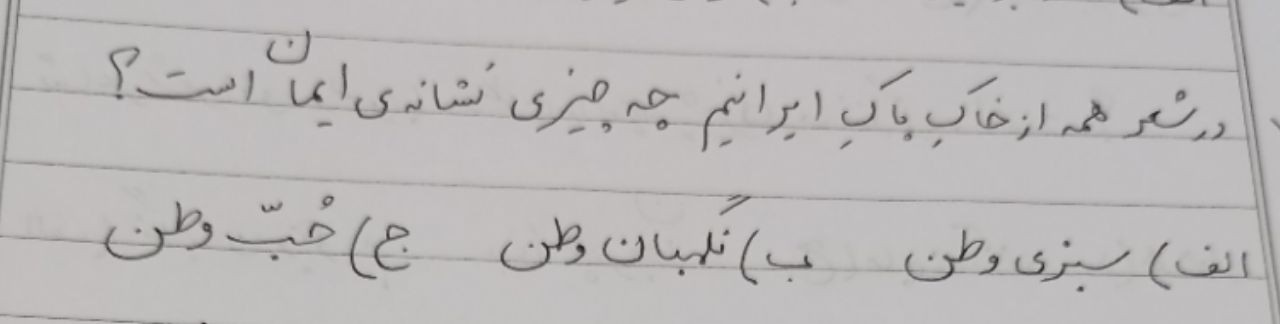 در شعر همه از خاکِ پاکِ ایرانیم چه چیزی نشانه ی ایمان است؟
الف) سبزی وطن ب) نگهبان وطن ج) حُبّ وطن